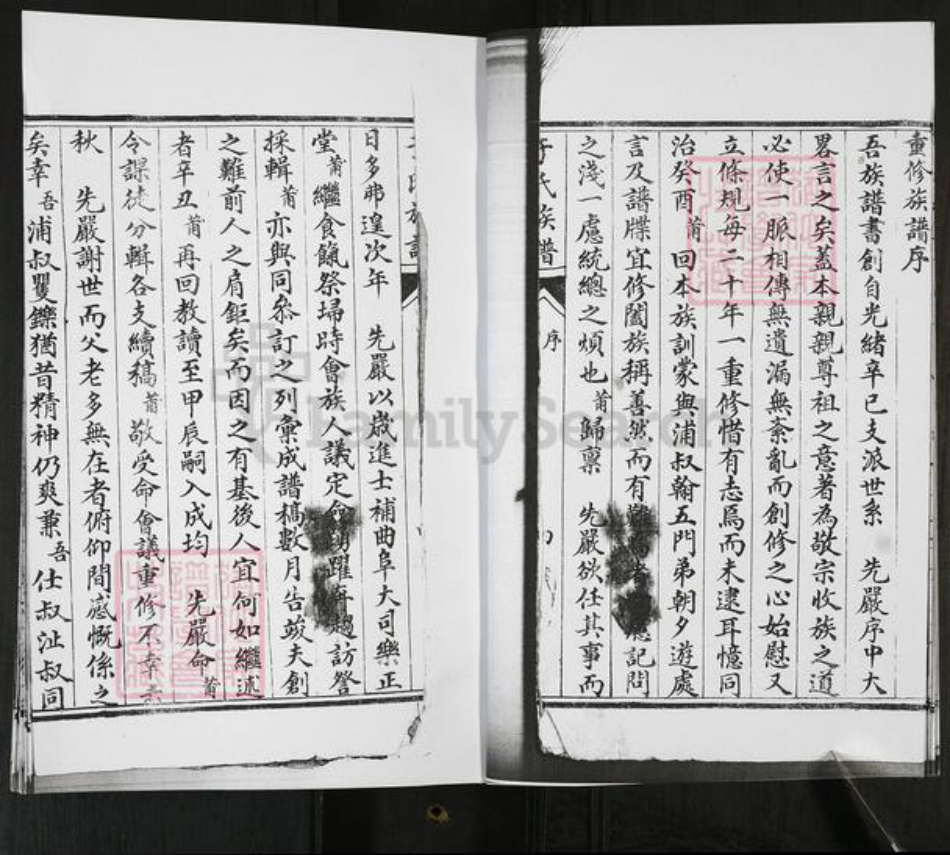 重修族譜序
吾族譜書創自光緒辛巳支派世系 先嚴序中大
畧言之矣蓋本親親尊祖之意著為敬宗收族之道
必使一脈相傳無遺漏無紊亂而創修之心始慰又
立條規每二十年一重修惜有志焉而未逮耳憶同
治癸酉莆回本族訓蒙與浦叔翰五門弟朝夕遊處
言及譜牒宜修闔族稱善然而有難 記問
之淺一慮統總之煩也莆歸稟 先嚴欲任其事而
氏族譜
序
日多弗遑次年 先嚴以歲進士補曲阜大司樂正
堂莆繼食餼祭埽時會族人議定僉踴躍 趨訪詧
採輯莆亦與同叅訂之列彙成譜稿數月告竣夫創
之難前人之肩鉅矣而因之有基後人宜何如繼述
者辛丑莆再回教讀至甲辰嗣入成均 先嚴命莆
令課徒分輯各支續稿莆敬受命會議重修不幸
秋 先嚴謝世而父老多無在者俯仰間感慨係之
矣幸吾浦叔矍鑠猶昔精神仍爽兼吾仕叔沚叔同
FamilySearch